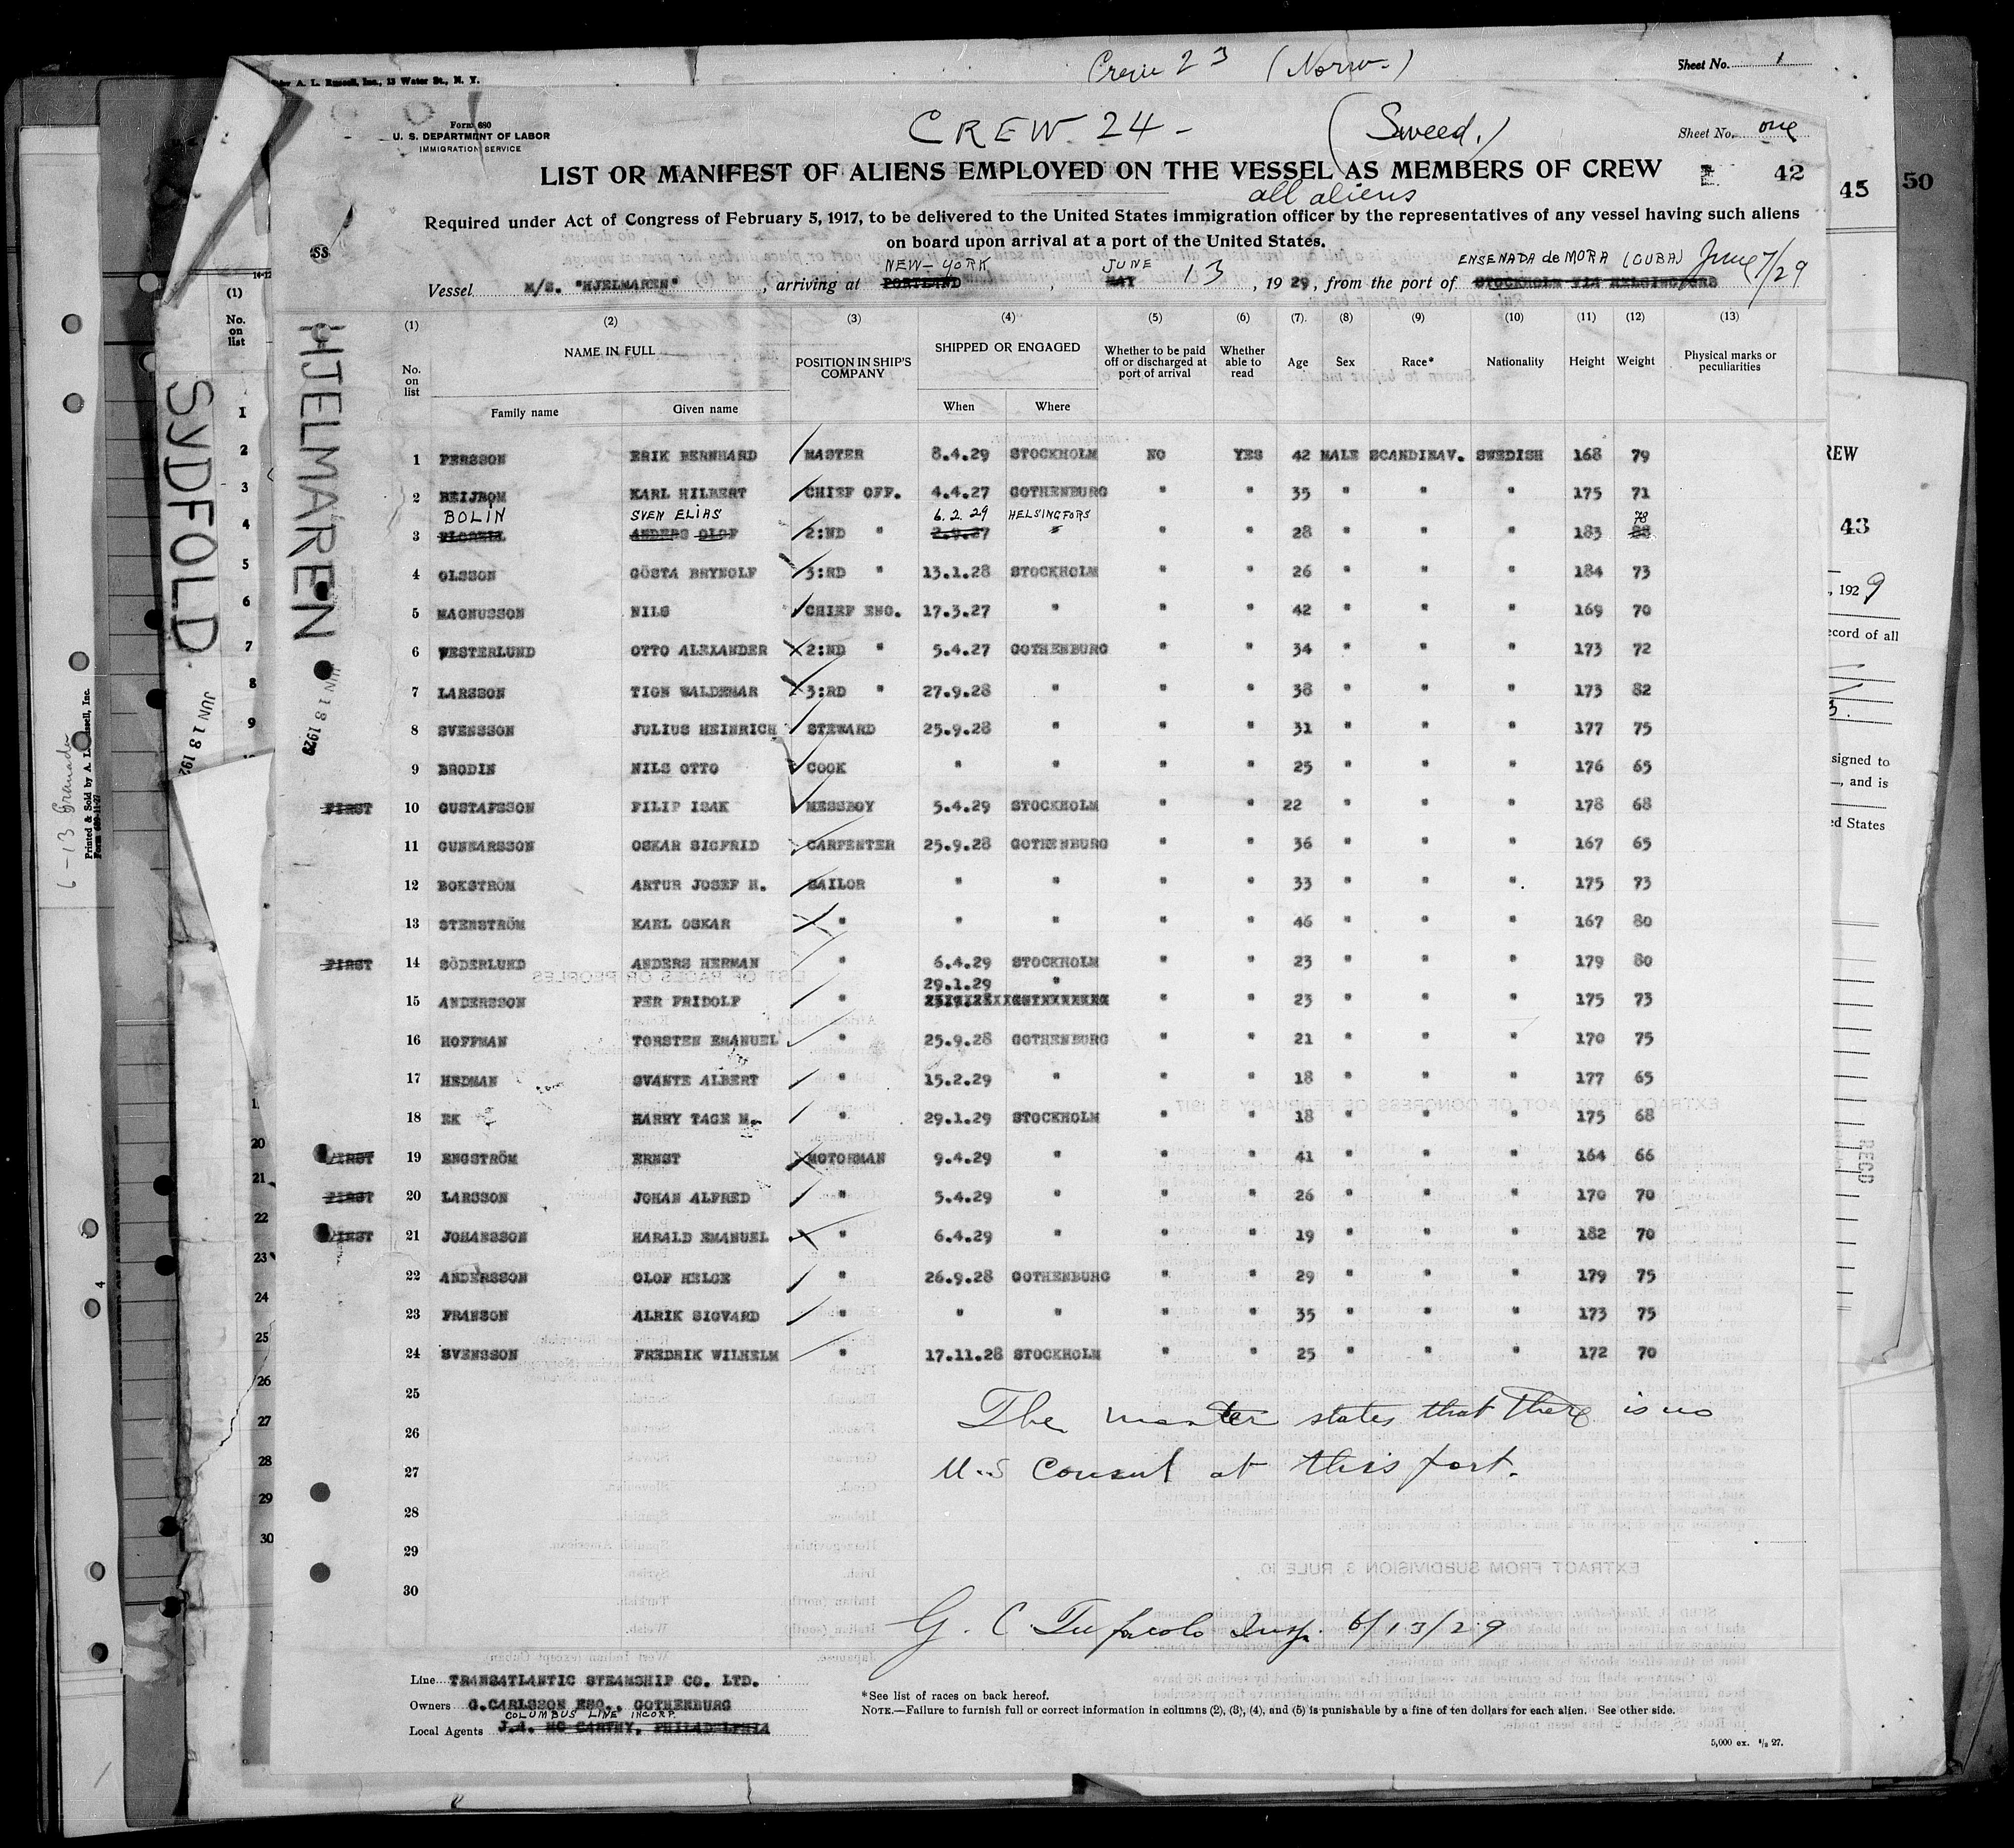 Crew 23 (Norw.)
Sheet No. 1
A. L. Russell, Inc., 13 Water St., N. Y.
Form 680
U. S. DEPARTMENT OF LABOR
IMMIGRATION SERVICE
CREW 24 - (Sweed.)
Sheet No. one
LIST OR MANIFEST OF ALIENS EMPLOYED ON THE VESSEL AS MEMBERS OF CREW
42
45
50
all aliens
Required under Act of Congress of February 5, 1917, to be delivered to the United States immigration officer by the representatives of any vessel having such aliens
on board upon arrival at a port of the United States.
NEW-YORK JUNE ENSENADA de MORA (CUBA) June 7/29
Vessel M/S. "HJELMAREN", arriving at PORTLAND, MAY 13, 1929, from the port of STOCKHOLM VIA HELSINGFORS
(1) (2) (3) (4) (5) (6) (7) (8) (9) (10) (11) (12) (13)
No. on list NAME IN FULL POSITION IN SHIP'S COMPANY SHIPPED OR ENGAGED Whether to be paid off or discharged at port of arrival Whether able to read Age Sex Race* Nationality Height Weight Physical marks or peculiarities
Family name Given name When Where
1 PERSSON ERIK BERNHARD MASTER 8.4.29 STOCKHOLM NO YES 42 MALE SCANDINAV. SWEDISH 168 79
2 BEIJBOM KARL HILBERT CHIEF OFF. 4.4.27 GOTHENBURG " " 35 " " " 175 71
BOLIN SVEN ELIAS 6.2.29 HELSINGFORS 78
3 ANDERS OLOF 2:ND " 2.9.27 " " " 28 " " " 183 88
4 OLSSON GÖSTA BRYNOLF 3:RD " 13.1.28 STOCKHOLM " " 26 " " " 184 73
5 MAGNUSSON NILS CHIEF ENG. 17.3.27 " " " 42 " " " 169 70
6 WESTERLUND OTTO ALEXANDER 2:ND " 5.4.27 GOTHENBURG " " 34 " " " 173 72
7 LARSSON TION WALDEMAR 3:RD " 27.9.28 " " " 38 " " " 173 82
8 SVENSSON JULIUS HEINRICH STEWARD 25.9.28 " " " 31 " " " 177 75
9 BRODIN NILS OTTO COOK " " " " 25 " " " 176 65
FIRST 10 GUSTAFSSON FILIP ISAK MESSBOY 5.4.29 STOCKHOLM " " 22 " " " 178 68
11 GUNNARSSON OSKAR SIGFRID CARPENTER 25.9.28 GOTHENBURG " " 36 " " " 167 65
12 BOKSTRÖM ARTUR JOSEF H. SAILOR " " " " 33 " " " 175 73
13 STENSTRÖM KARL OSKAR " " " " " 46 " " " 167 80
FIRST 14 SÖDERLUND ANDERS HERMAN " 6.4.29 STOCKHOLM " " 23 " " " 179 80
29.1.29 "
15 ANDERSSON PER FRIDOLF " " " 23 " " " 175 73
16 HOFFMAN TORSTEN EMANUEL " 25.9.28 GOTHENBURG " " 21 " " " 170 75
17 HEDMAN SVANTE ALBERT " 15.2.29 " " " 18 " " " 177 65
18 EK HARRY TAGE M. " 29.1.29 STOCKHOLM " " 18 " " " 175 68
FIRST 19 ENGSTRÖM ERNST MOTORMAN 9.4.29 " " " 41 " " " 164 66
FIRST 20 LARSSON JOHAN ALFRED " 5.4.29 " " " 26 " " " 170 70
FIRST 21 JOHANSSON HARALD EMANUEL " 6.4.29 " " " 19 " " " 182 70
22 ANDERSSON OLOF HELGE " 26.9.28 GOTHENBURG " " 29 " " " 179 75
23 FRANSON ALRIK SIGVARD " " " " " 35 " " " 173 75
24 SVENSSON FREDRIK WILHELM " 17.11.28 STOCKHOLM " " 25 " " " 172 70
25
26
27
28
29
30
The master states that there is no
U.S Consul at this port.
G. C. Insp. 6/13/29
Line TRANSATLANTIC STEAMSHIP CO. LTD.
Owners G.CARLSSON ESQ., GOTHENBURG
COLUMBUS LINE INCORP.
Local Agents J.A. MC CARTHY, PHILADELPHIA
*See list of races on back hereof.
NOTE.—Failure to furnish full or correct information in columns (2), (3), (4), and (5) is punishable by a fine of ten dollars for each alien. See other side.
5,000 ex. 5/2 27.
HJELMAREN
JUN 13 1929
SYDFOLD
JUN 13 192
SS
(1)
No. on list
1
2
3
4
5
6
7
8
9
20
21
22
23
24
25
26
27
28
29
30
6-13 Granada
Printed & Sold by A. L. Russell, Inc.
REW
43
, 1929
ecord of all
signed to
, and is
ed States
RECD